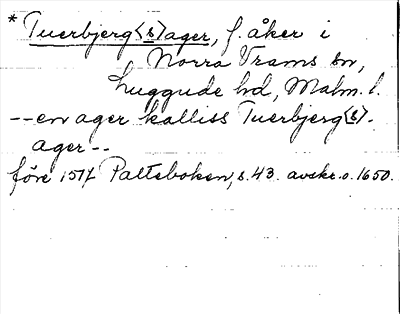 * Tuerbjerg<s>ager, f. åker i
Norra Vrams sn,
Luggude hd, Malm. l.
-- en ager kalliss Tuerbjerg<s>-
ager --
före 1517 Palteboken, s. 43. avskr. o. 1650.